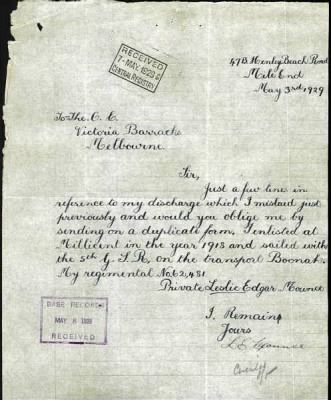 RECEIVED
7-MAY.1929
CENTRAL REGISTRY
47B Henley Beach Road
Mile End
May 3rd, 1929
To The O. C.
Victoria Barracks
Melbourne.
Sir,
Just a few lines in
reference to my discharge which I mislaid just
previously and would you oblige me by
sending on a duplicate form, I enlisted at
Millicent in the year 1918 and sailed with
the 5th G.S.R, on the transport Boonah.
My regimental No 62,431
Private Leslie Edgar Mounce
I. Remain
Yours
L E Mounce
BASE RECORDS
MAY 8 1929
RECEIVED